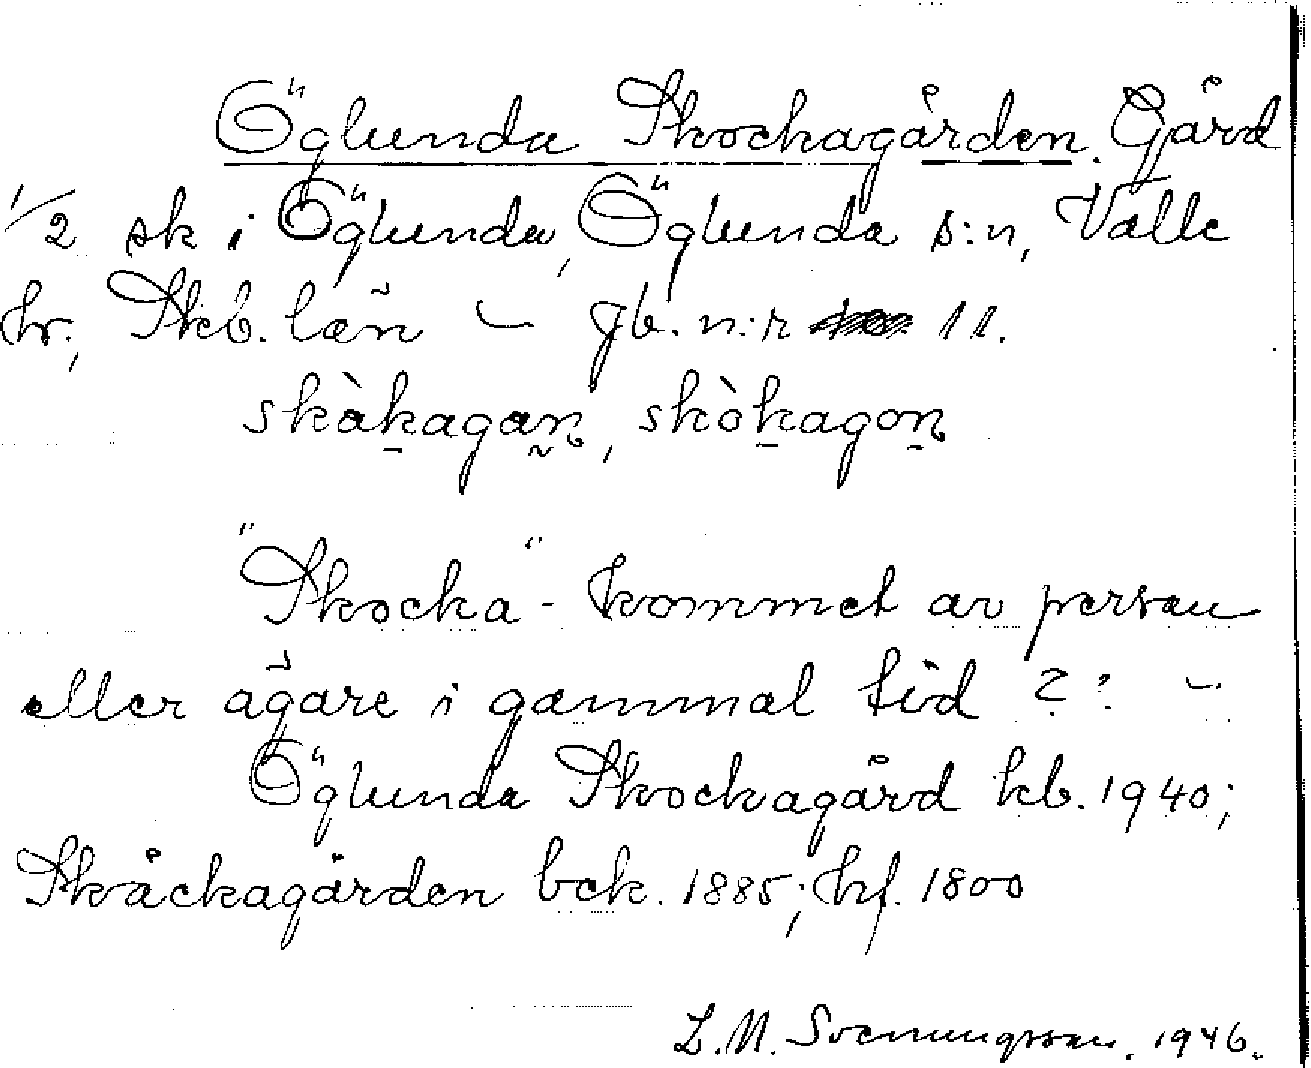 Öglunda Skockagården. Gård
1/2 sk i Öglunda, Öglunda s:n, Valle
hr., Skb. län – jb. n:r 11.
skàkagaṉ, skòkagoṉ
"Skocka"- kommet av person
eller ägare i gammal tid ?? –
Öglunda Skockagård kb. 1940;
Skåckagården bek. 1885; hf. 1800
L.M. Svenungsson. 1946.